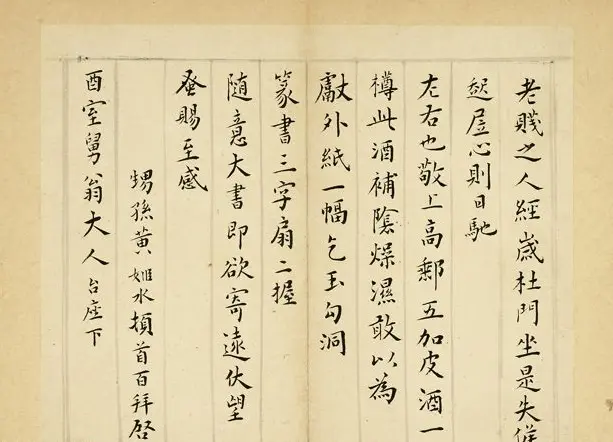 老賤之人經歲杜門坐是失候
起居心則日馳
左右也敬上高郵五加皮酒一
樽此酒補隂燥濕敢以為
獻外紙一幅乞玉勾洞
篆書三字扇二握
随意大書即欲寄遠伏望
蚤賜至感
甥孫黃姬水頓首百拜啓
酉室舅翁大人台座下